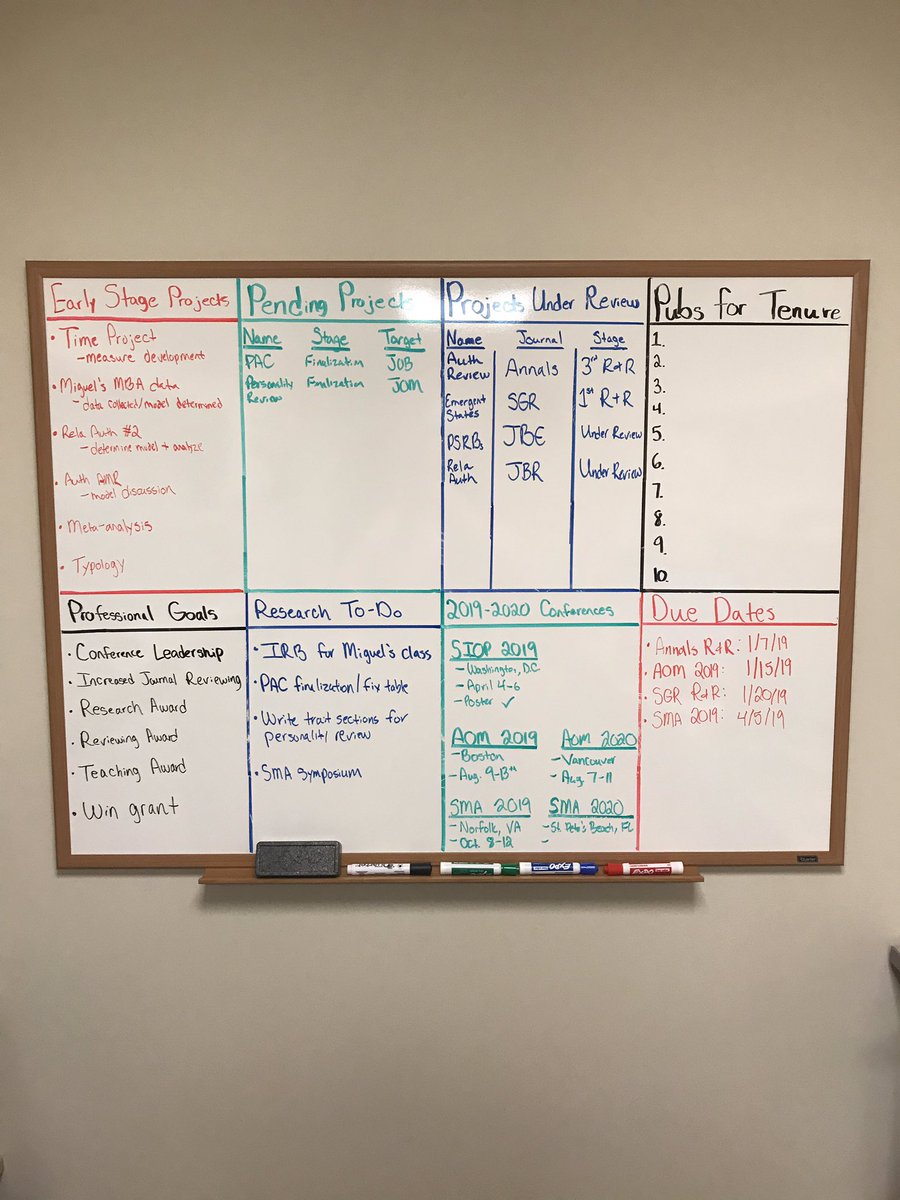 Early Stage Projects
• Time Project
- measure development
• Miguel's MBA data
- data collected/model determined
• Rela Auth #2
- determine model + analyze
• Auth AMR
- model discussion
• Meta-analysis
• Typology
Pending Projects
Name Stage Target
PAC Finalization JOB
Personality Review Finalization JOM
Projects Under Review
Name Journal Stage
Auth Review Annals 3rd R+R
Emergent States SGR 1st R+R
PSRBs JBE Under Review
Rela Auth JBR Under Review
Pubs for Tenure
1.
2.
3.
4.
5.
6.
7.
8.
9.
10.
Professional Goals
• Conference Leadership
• Increased Journal Reviewing
• Research Award
• Reviewing Award
• Teaching Award
• Win grant
Research To-Do
• IRB for Miguel's class
• PAC finalization/fix table
• Write trait sections for
personality review
• SMA Symposium
2019-2020 Conferences
SIOP 2019
- Washington, D.C.
- April 4-6
- Poster ✓
AOM 2019
- Boston
- Aug. 9-13th
AOM 2020
- Vancouver
- Aug 7-11
SMA 2019
- Norfolk, VA
- Oct. 8-12
SMA 2020
- St. Pete's Beach, FL
-
Due Dates
• Annals R+R: 1/7/19
• AOM 2019: 1/15/19
• SGR R+R: 1/20/19
• SMA 2019: 4/5/19
EXPO
EXPO